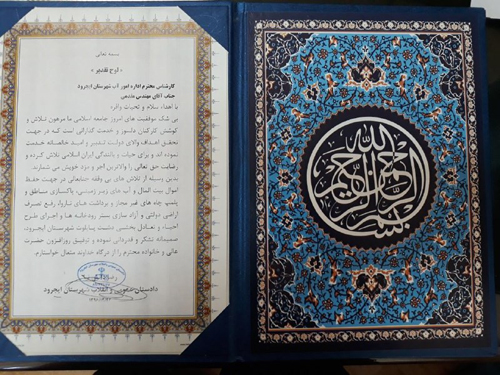 بسمه تعالی
« لوح تقدیر »
کارشناس محترم اداره امور آب شهرستان ایجرود
جناب آقای مهندس
با اهداء سلام و تحیات وافره
بی شک موفقیت های امروز جامعه اسلامی ما مرهون تلاش و
کوشش کارکنان دلسوز و خدمت گذارانی است که در جهت
تحقق اهداف والای دولت تدبیر و امید خالصانه خدمت
نموده اند و برای حیات و بالندگی ایران اسلامی تلاش کرده و
رضایت حق تعالی را والاترین اجر و مزد خویش می شمارند.
بدین وسیله از تلاش های بی وقفه جنابعالی در جهت حفظ
اموال بیت المال و آب های زیر زمینی، پاکسازی مناطق و
پلمپ چاه های غیر مجاز و برداشت های ناروا، رفع تصرف
اراضی دولتی و آزاد سازی بستر رودخانه ها و اجرای طرح
احیاء و تعادل بخشی دشت شهرستان ایجرود،
صمیمانه تشکر و قدردانی نموده و توفیق روزافزون حضرت
عالی و خانواده محترم را از درگاه خداوند متعال خواستارم.
دادستان عمومی و انقلاب شهرستان ایجرود
بسم الله الرحمن الرحیم